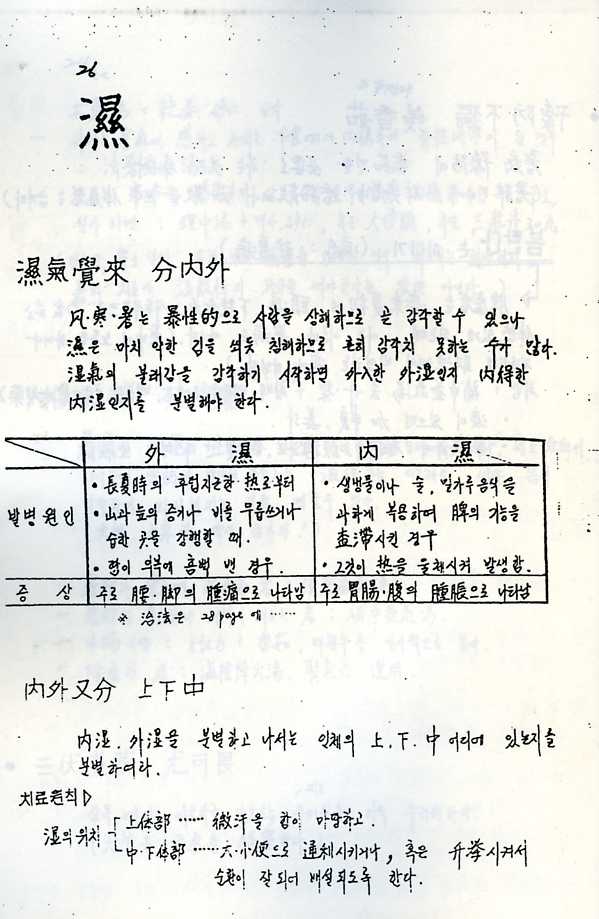 26
濕
濕氣覺來 分內外
风·寒·暑는 暴性的으로 사람을 상해하므로 곧 감각할 수 있으나
濕은 마치 악한 김을 쐬듯 침해하므로 흔히 감각치 못하는 수가 많다.
濕氣의 불쾌감을 감각하기 시작하면 外入한 外湿인지 內得한
內湿인지를 분별해야 한다.
外 濕 內 濕
발병원인
• 長夏時의 후덥지근한 热로부터
• 山과 늪의 증기나 비를 무릅쓰거나
습한 곳을 강행할 때.
• 땀이 의복에 흠뻑 밴 경우.
• 생냉물이나 술, 밀가루음식을
과하게 복용하며 脾의 기능을
壅滯시킨 경우
• 그것이 热을 울체시켜 발생함.
증 상 주로 腰·脚의 腫痛으로 나타남 주로 胃腸·腹의 腫脹으로 나타남
※ 治法은 28 page 에 ……
內外又分 上下中
內湿, 外湿을 분별하고 나서는 인체의 上, 下, 中 어디에 있는지를
분별하여라.
치료원칙▷
湿의 위치
上体部 …… 微汗을 함이 마땅하고.
中·下体部 …… 大·小便으로 通利시키거나, 혹은 升擧시켜서
순환이 잘 되어 배설되도록 한다.